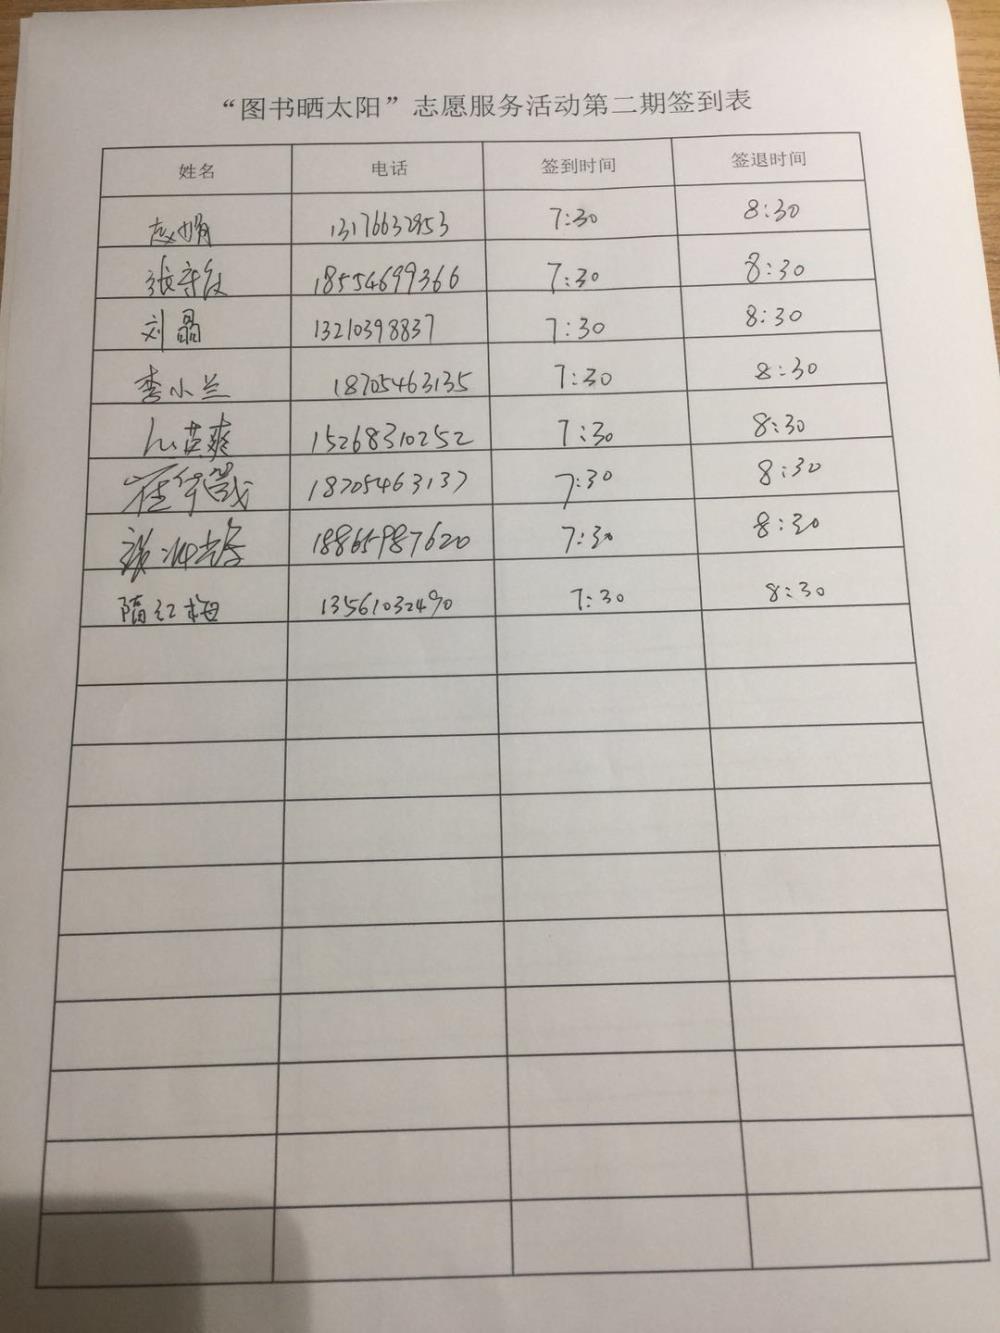 “图书晒太阳”志愿服务活动第二期签到表
姓名 电话 签到时间 签退时间
赵娟 13176632953 7:30 8:30
张 18554699366 7:30 8:30
刘晶 13210398837 7:30 8:30
李小兰 18705463135 7:30 8:30
英爽 15268310252 7:30 8:30
崔华 18705463137 7:30 8:30
18865987620 7:30 8:30
隋红梅 13561032490 7:30 8:30